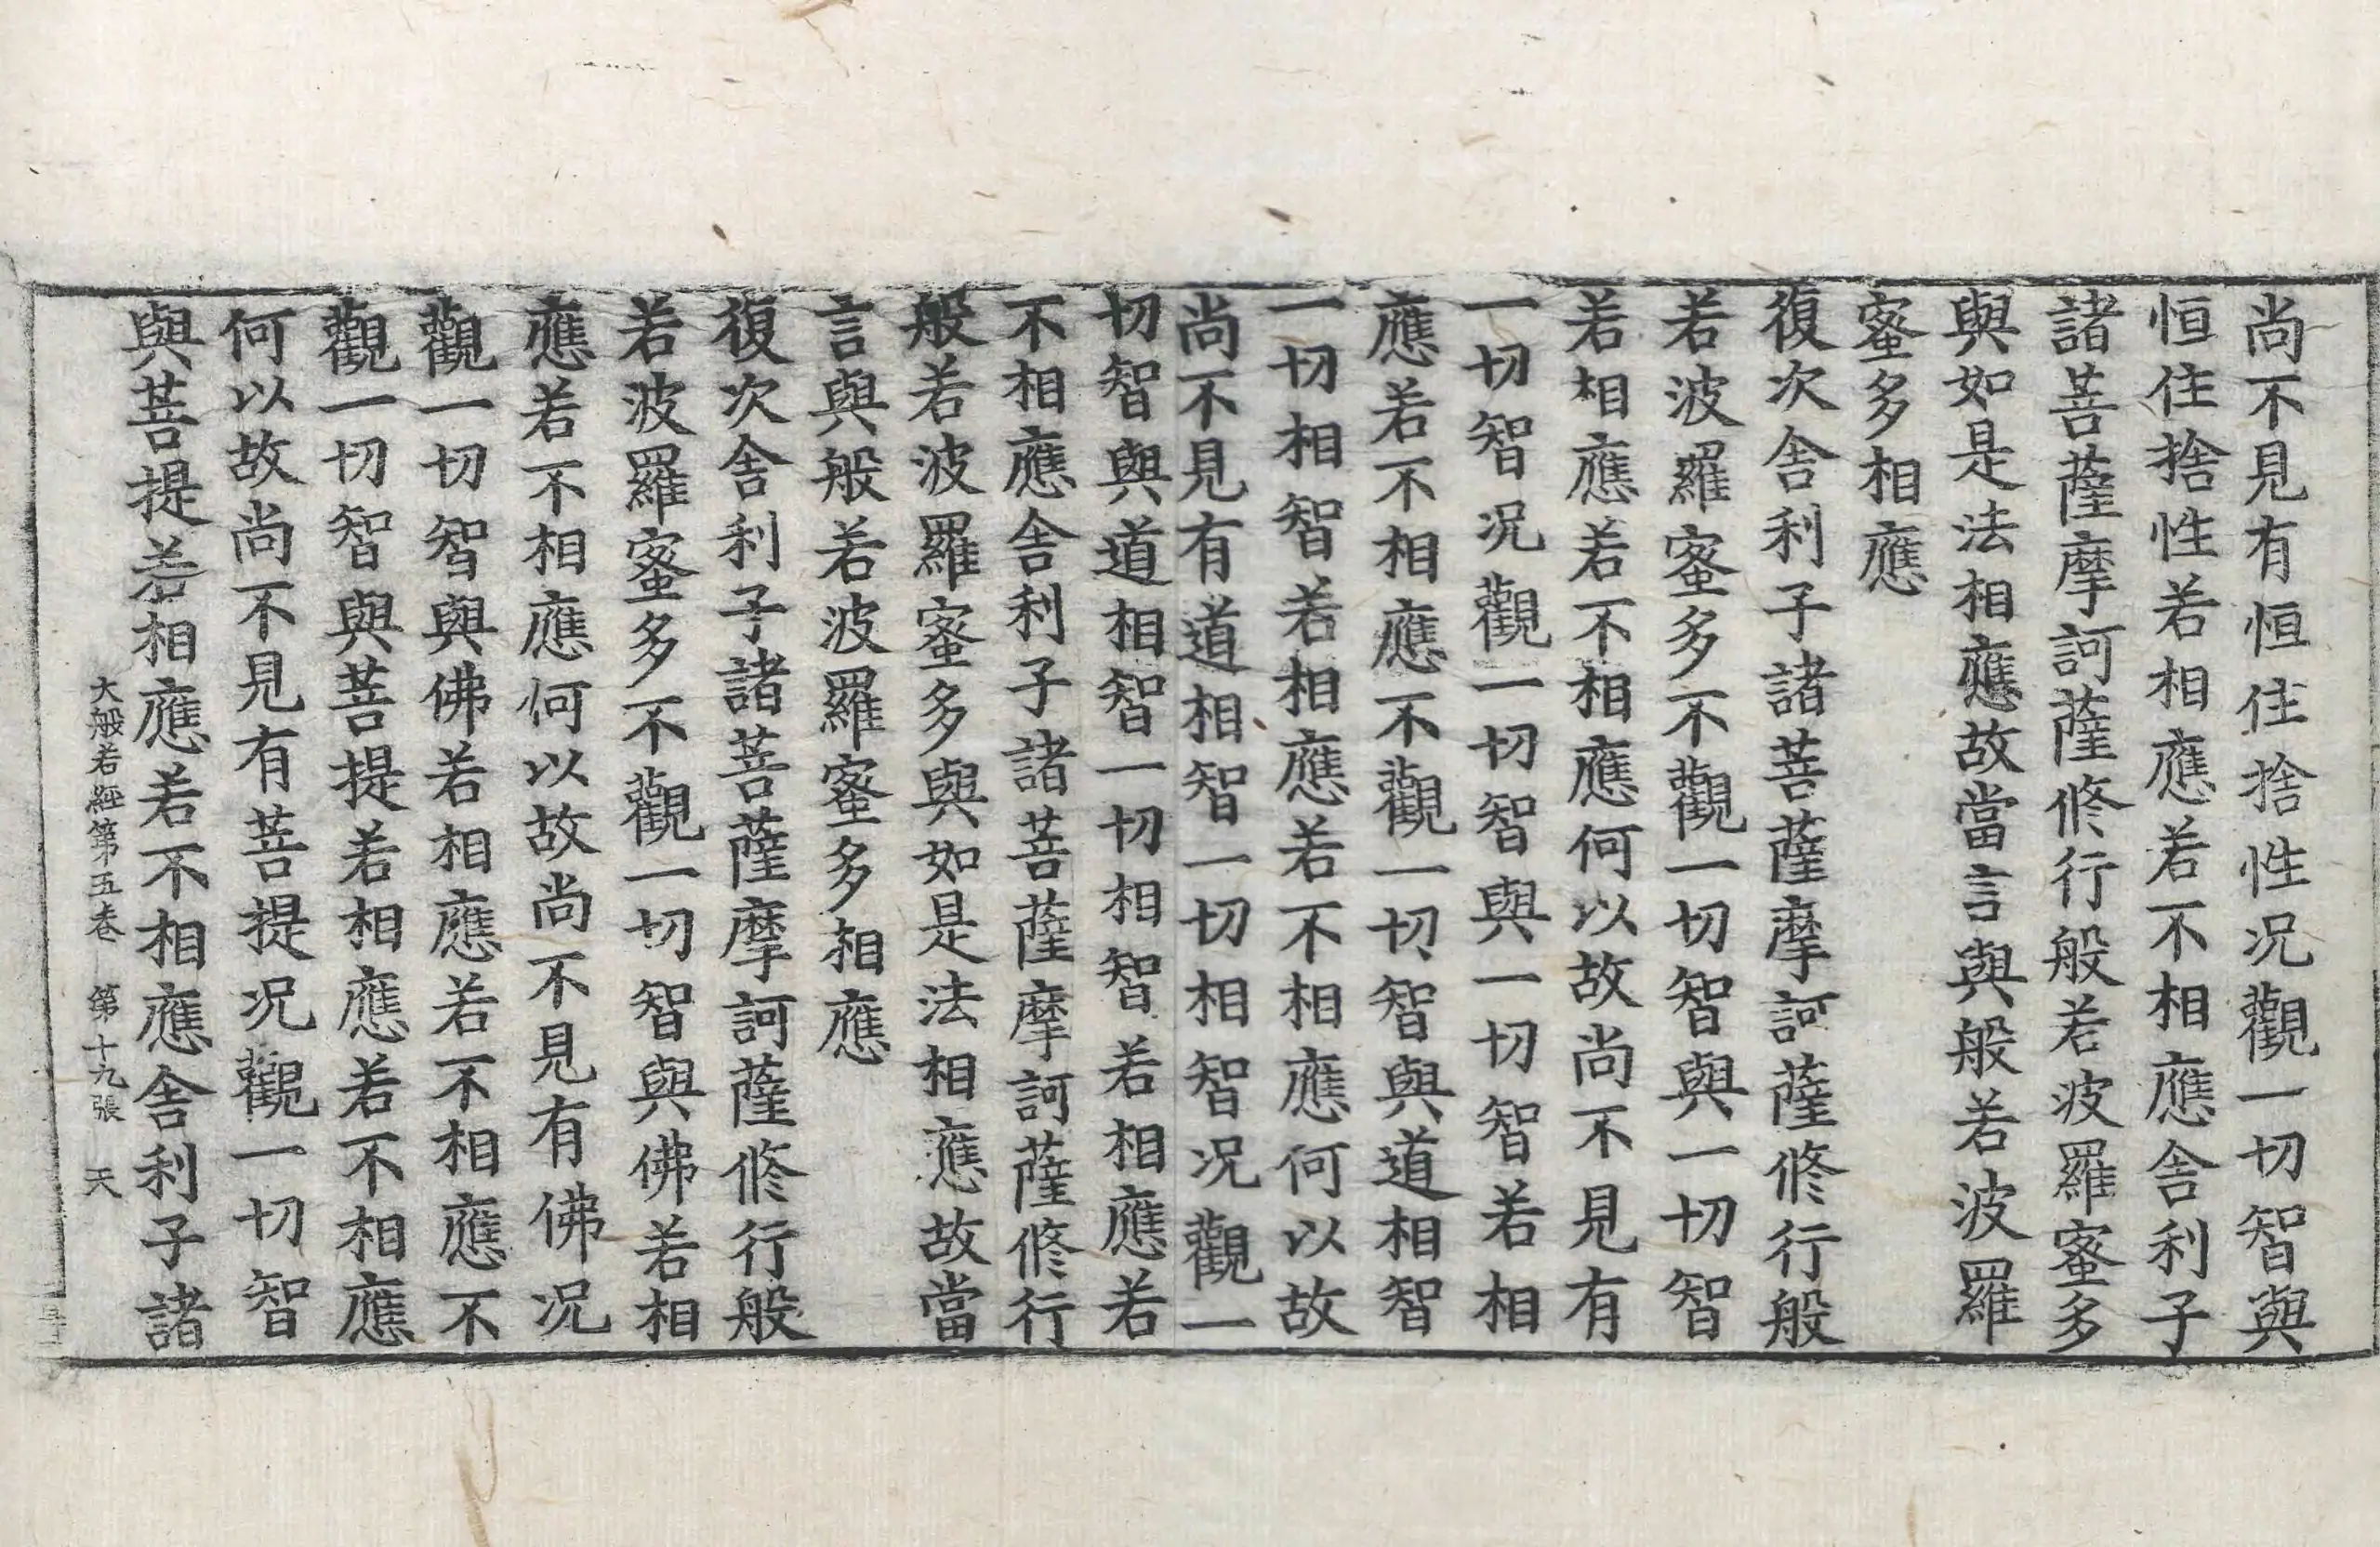 尚不見有恒住捨性况觀一切智與
恒住捨性若相應若不相應舍利子
諸菩薩摩訶薩修行般若波羅蜜多
與如是法相應故當言與般若波羅
蜜多相應
復次舍利子諸菩薩摩訶薩修行般
若波羅蜜多不觀一切智與一切智
若相應若不相應何以故尚不見有
一切智况觀一切智與一切智若相
應若不相應不觀一切智與道相智
一切相智若相應若不相應何以故
尚不見有道相智一切相智况觀一
切智與道相智一切相智若相應若
不相應舍利子諸菩薩摩訶薩修行
般若波羅蜜多與如是法相應故當
言與般若波羅蜜多相應
復次舍利子諸菩薩摩訶薩修行般
若波羅蜜多不觀一切智與佛若相
應若不相應何以故尚不見有佛况
觀一切智與佛若相應若不相應不
觀一切智與菩提若相應若不相應
何以故尚不見有菩提况觀一切智
與菩提若相應若不相應舍利子諸
大般若經第五卷 第十九張 天